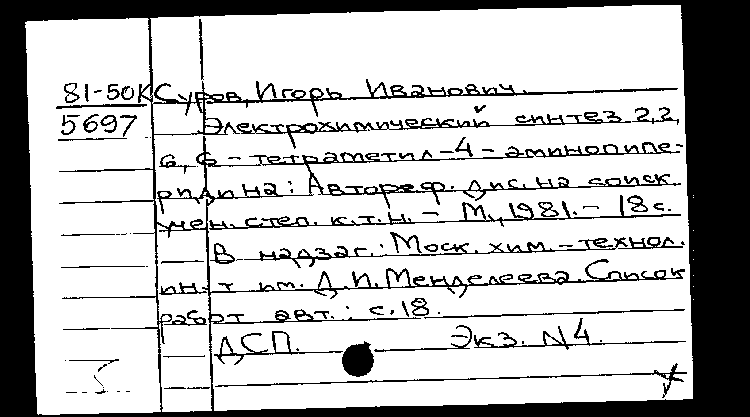 81-50К Суров, Игорь Иванович.
5697 Электрохимический синтез 2,2,
6,6-тетраметил-4-аминопипе-
ридина: Автореф. дис. на соиск.
учен. степ. к.т.н. - М., 1981. - 18 с.
В надзаг.: Моск. хим.-технол.
ин-т им. Д.И. Менделеева. Список
работ авт.: с. 18.
ДСП. Экз. N4.
5